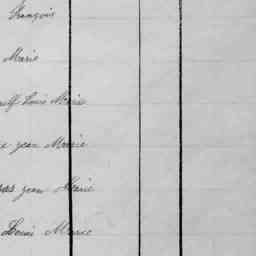 François
Marie
Louis Marie
jean Marie
jean Marie
Louis Marie